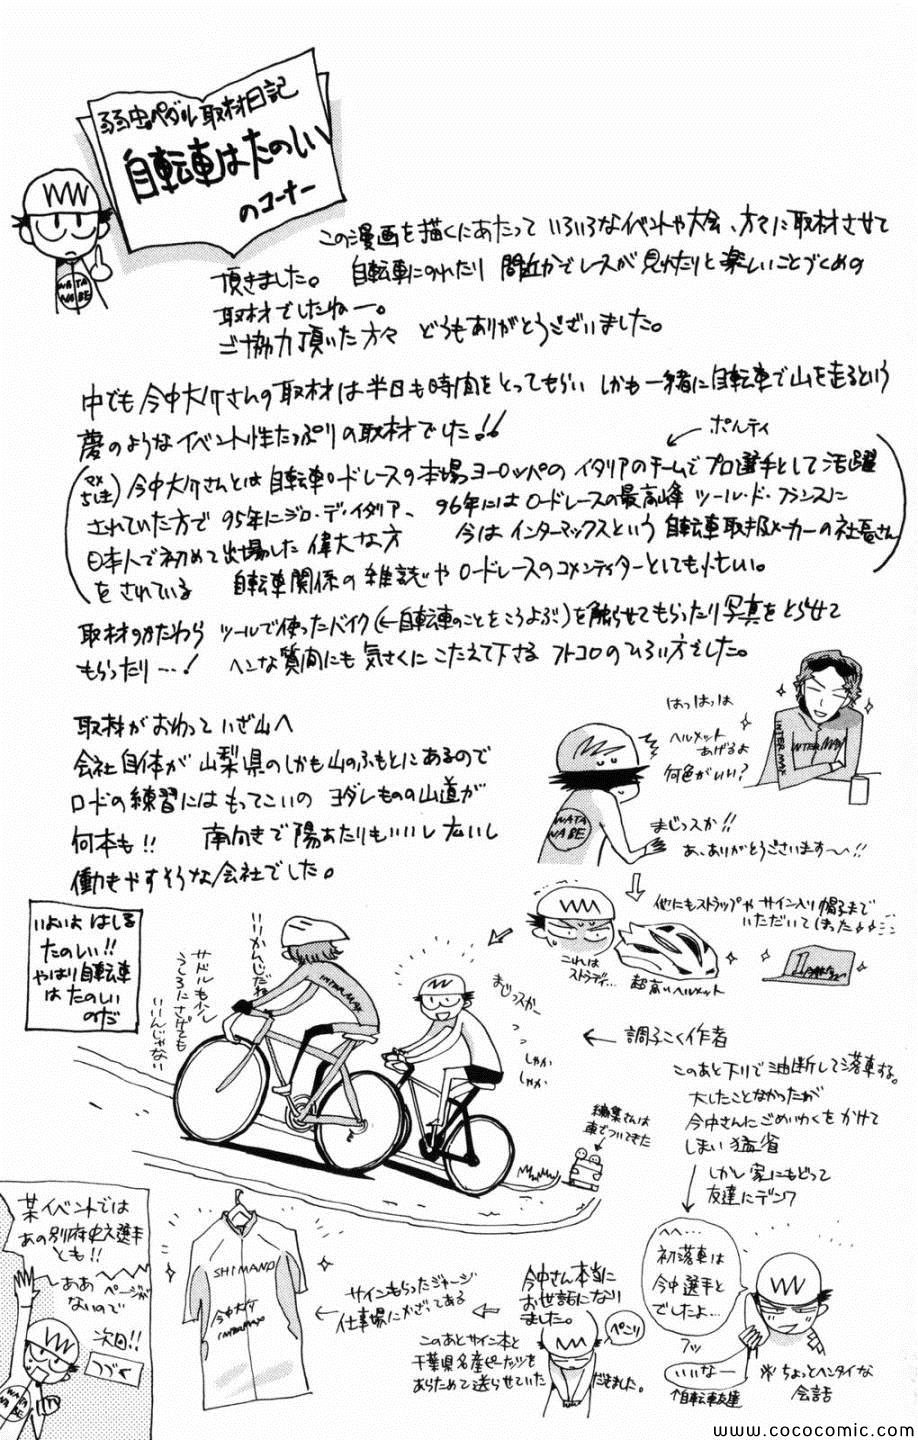 弱虫ペダル取材日記
自転車はたのしい
のコーナー
WATA
NABE
この漫画を描くにあたって いろいろなイベントや大会、方々に取材させて
頂きました。 自転車にのれたり 間近かでレースが見れたりと楽しいことづくめの
取材でしたねー。
ご協力頂いた方々 どうもありがとうございました。
中でも今中大介さんの取材は半日も時間をとってもらい しかも一緒に自転車で山を走るという
夢のようなイベント性たっぷりの取材でした!!
ポルティ
(マメちしき) 今中大介さんとは 自転車ロードレースの本場ヨーロッパの イタリアのチームでプロ選手として活躍
されていた方で 95年にジロ・デ・イタリア、 96年にはロードレースの最高峰 ツール・ド・フランスに
日本人で初めて出場した偉大な方 今はインターマックスという自転車取扱メーカーの社長さん
をされている 自転車関係の雑誌やロードレースのコメンティターとしても忙しい。
取材のかたわら ツールで使ったバイク(←自転車のことをこうよぶ)を触らせてもらったり写真をとらせて
もらったり…! ヘンな質問にも気さくにこたえて下さる フトコロのひろい方でした。
はっはっは
ヘルメット
あげるよ
何色がいい?
INTERMAX
INTERMAX
WATA
NABE
まじっスか!!
あ、ありがとうございます〜!!
取材がおわって いざ山へ
会社自体が山梨県のしかも山のふもとにあるので
ロードの練習にはもってこいの ヨダレものの山道が
何本も!! 南向きで陽あたりもいいし広いし
働きやすそうな会社でした。
他にもストラップやサイン入り帽子まで
いただいてしまった
これは
ストラディ…
超高いヘルメット
いよいよはしる
たのしい!!
やはり自転車
はたのしい
のだ
いいかんじだね
サドルも少し
うしろにさげても
いいんじゃない
INTERMAX
まじっスかー
しゃか
しゃか
← 調子こく作者
このあと下りで油断して落車する。
大したことなかったが
今中さんにごめいわくをかけて
しまい猛省
しかし家にもどって
友達にデンワ
編集さんは
車でついてきた
へへ…
初落車は
今中選手と
でしたよ…
フッ
いいなー
↑自転車友達
※ちょっとヘンタイな
会話
今中さん本当に
お世話になり
ました。
ぺこり
このあとサイン本と
千葉県名産ピーナッツを
あらためて送らせていただきました。
サインもらったジャージ
仕事場にかざってある
SHIMANO
今中大介
INTERMAX
某イベントでは
あの別府史之選手
とも!!
ああ ページが
ないので
次回!!
つづく
WATA
NABE
www.cococomic.com